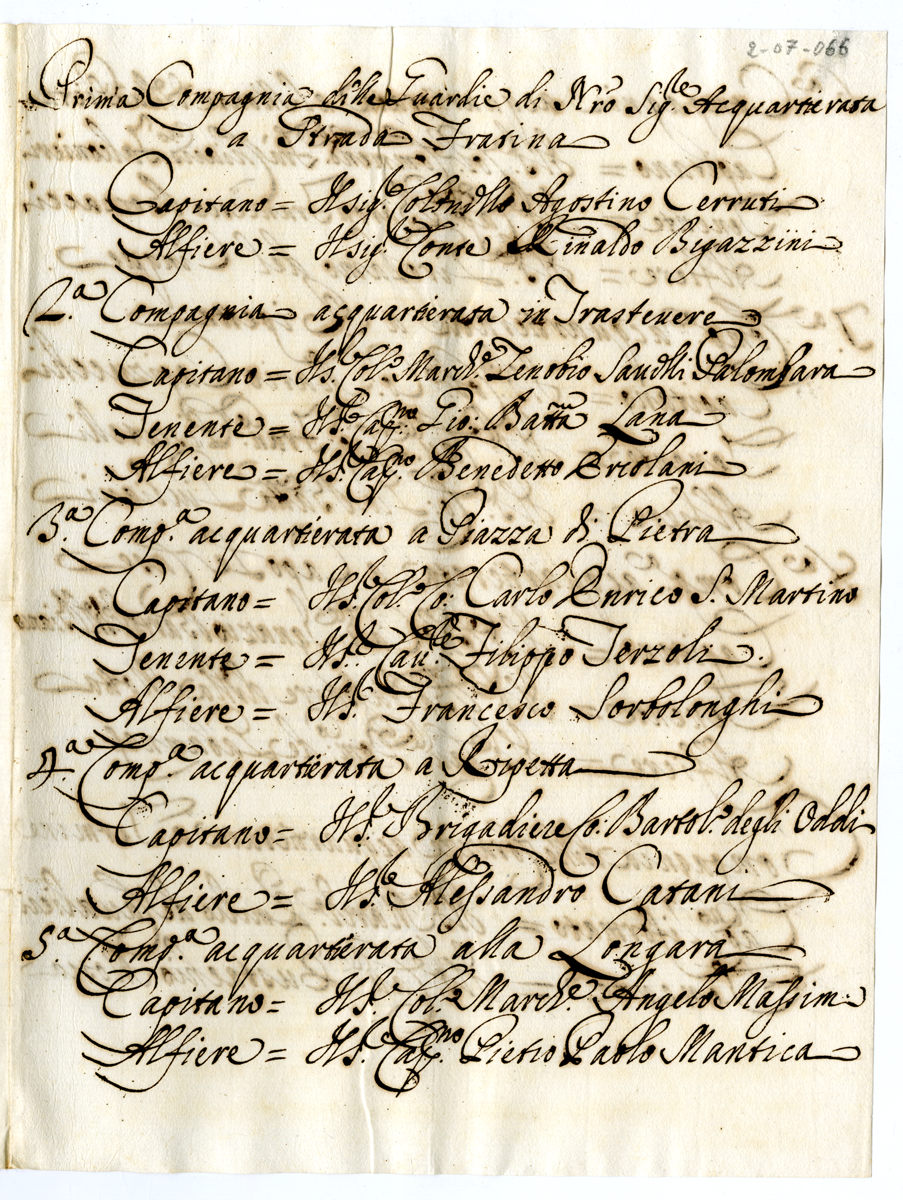 2-07-066
Prima Compagnia delle Guardie di Nro Sig.re Acquartierata
a Strada Fratina
Capitano = Il sig.r Colonello Agostino Cerruti
Alfiere = Il sig.r Conte Rinaldo Bigazzini
2.a Compagnia acquartierata in Trastevere
Capitano = Il S.r Col.o March.e Zenobio Savelli Palombara
Tenente = Il S.r Cap.no Gio: Batta Lana
Alfiere = Il S.r Cap.no Benedetto Ercolani
3.a Comp.a acquartierata a Piazza di Pietra
Capitano = Il S.r Col.o Co: Carlo Enrico S. Martino
Tenente = Il S.r Cau.re Filippo Terzoli.
Alfiere = Il S.r Francesco Sorbolonghi
4.a Comp.a acquartierata a Ripetta
Capitano = Il S.r Brigadiere Co: Bartol.o degli Oddi
Alfiere = Il S.r Alessandro Catani
5.a Comp.a acquartierata alla Longara
Capitano = Il S.r Col.o March.e Angelo Massimi
Alfiere = Il S.r Cap.no Pietro Paolo Mantica